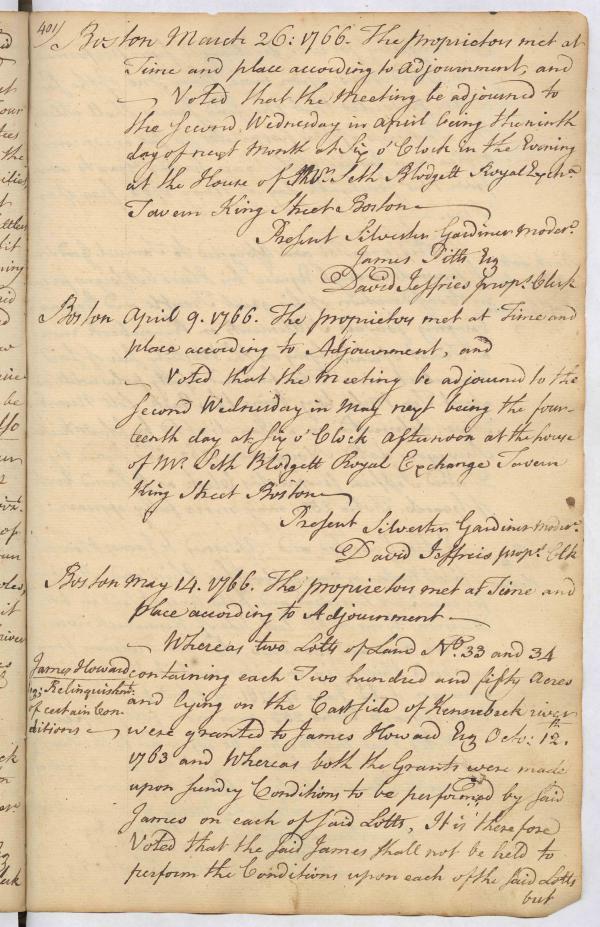 401/
Boston March 26: 1766. The proprietors met at
Time and place according to Adjournment, and
Voted that the Meeting be adjourned to
the Second Wednesday in April being the ninth
day of next Month at Six o'Clock in the Evening
at the House of Mr. Seth Blodgett Royal Exchª
Tavern King Street Boston
Present Silvester Gardiner Moderr.
James Pitts Esq
David Jeffries propr. Clerk
Boston April 9. 1766. The proprietors met at Time and
place according to Adjournment, and
Voted that the Meeting be adjournd to the
Second Wednesday in May next being the four-
teenth day at Six o'Clock afternoon at the house
of Mr. Seth Blodgett Royal Exchange Tavern
King Street Boston
Present Silvester Gardiner Moderr.
David Jeffries propr. Clk
Boston May 14. 1766. The proprietors met at Time and
place according to Adjournment
Whereas two Lotts of Land No. 33 and 34
James Howard
containing each Two hundred and fifty Acres
Relinquishmt.
and lying on the East side of Kennebeck river
of certain Con-
ditions
were granted to James Howard Esq Octo: 12th.
1763 and Whereas both the Grants were made
upon Sundry Conditions to be performed by Said
James on each of Said Lotts, It is therefore
Voted that the Said James shall not be held to
perform the Conditions upon each of the Said Lotts
but